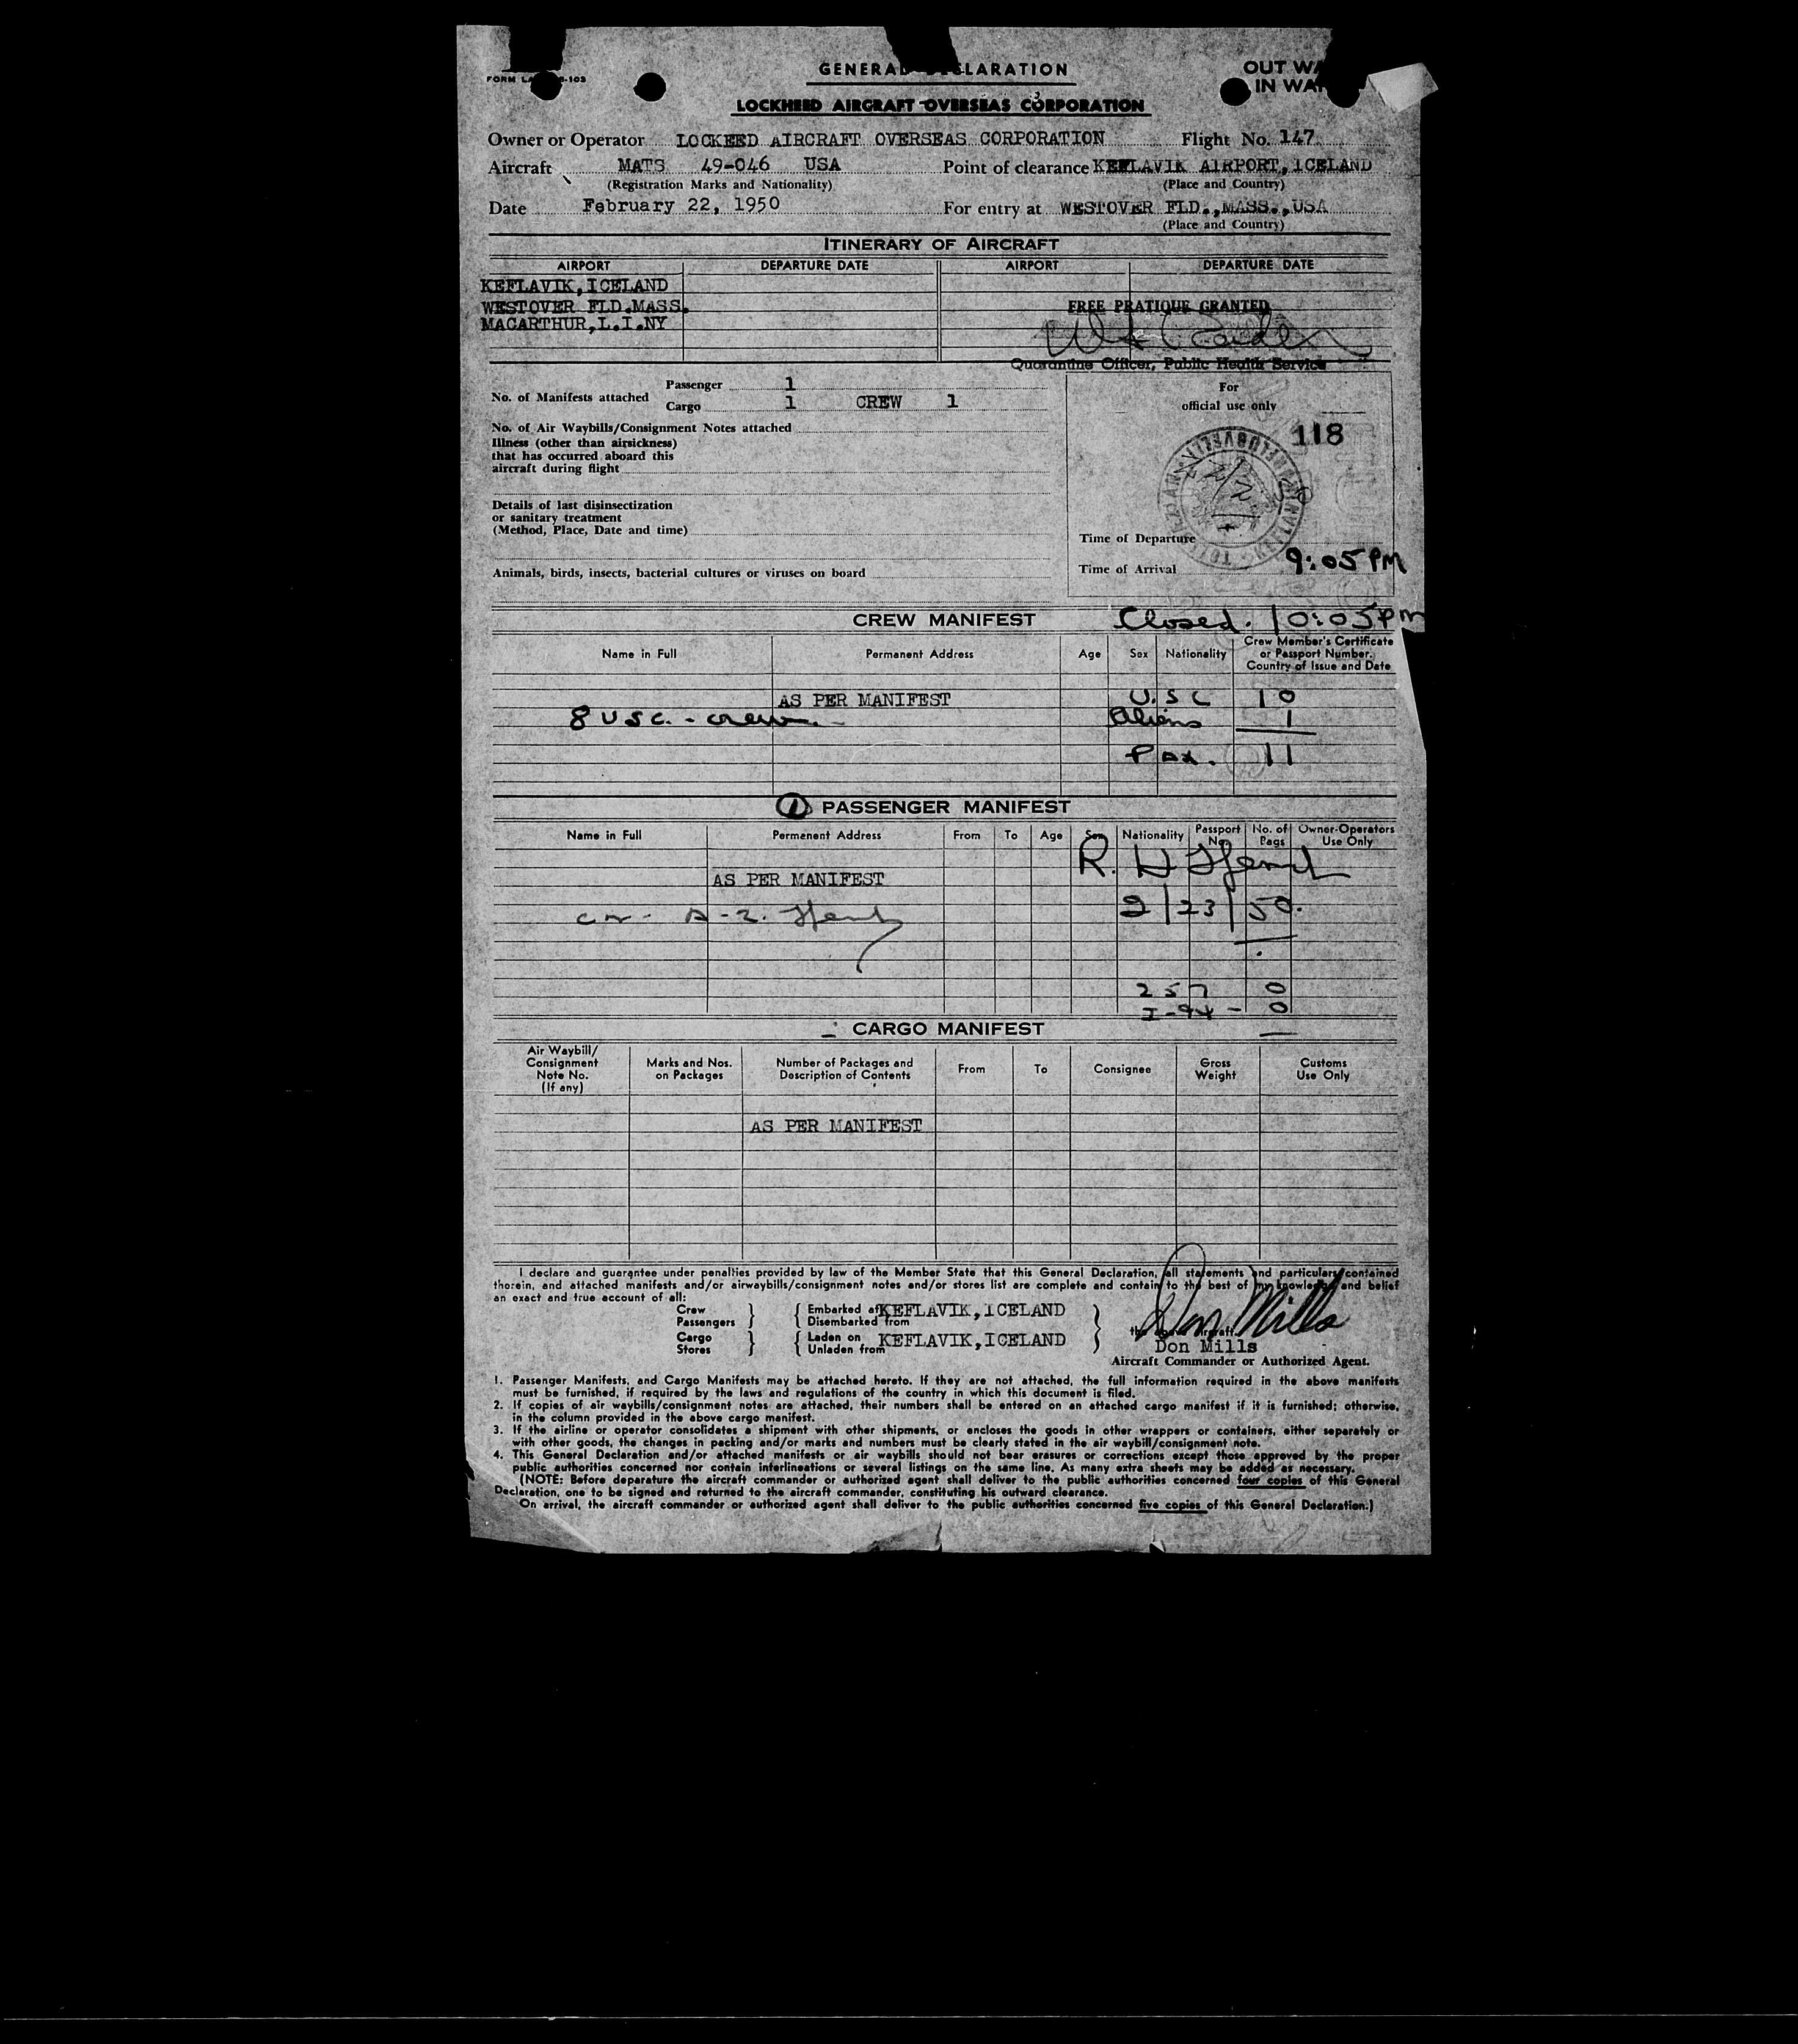 GENERAL DECLARATION
OUT WA
IN WA
LOCKHEED AIRCRAFT OVERSEAS CORPORATION
Owner or Operator LOCKEED AIRCRAFT OVERSEAS CORPORATION Flight No. 147
Aircraft MATS 49-046 USA Point of clearance KEFLAVIK AIRPORT, ICELAND
(Registration Marks and Nationality) (Place and Country)
Date February 22, 1950 For entry at WESTOVER FLD., MASS., USA
(Place and Country)
ITINERARY OF AIRCRAFT
AIRPORT DEPARTURE DATE AIRPORT DEPARTURE DATE
KEFLAVIK, ICELAND
WESTOVER FLD. MASS. FREE PRATIQUE GRANTED
MACARTHUR, L.I.NY
Quarantine Officer, Public Health Service
No. of Manifests attached Passenger 1
Cargo 1 CREW 1
For
official use only
118
No. of Air Waybills/Consignment Notes attached
Illness (other than airsickness)
that has occurred aboard this
aircraft during flight
Details of last disinsectization
or sanitary treatment
(Method, Place, Date and time)
Animals, birds, insects, bacterial cultures or viruses on board
Time of Departure
Time of Arrival 9:05 PM
CREW MANIFEST Closed. 10:05 pm
Name in Full Permanent Address Age Sex Nationality Crew Member's Certificate
or Passport Number.
Country of Issue and Date
AS PER MANIFEST U.S.C 10
8 USC. - crew. Aliens 1
Pax. 11
1 PASSENGER MANIFEST
Name in Full Permanent Address From To Age Sex Nationality Passport No. No. of Bags Owner-Operators Use Only
R. H
AS PER MANIFEST
2/23/50.
257 0
I-94 - 0
CARGO MANIFEST
Air Waybill/
Consignment
Note No.
(If any)
Marks and Nos.
on Packages
Number of Packages and
Description of Contents
From To Consignee
Gross
Weight
Customs
Use Only
AS PER MANIFEST
I declare and guarantee under penalties provided by law of the Member State that this General Declaration, all statements and particulars contained
therein, and attached manifests and/or airwaybills/consignment notes and/or stores list are complete and contain to the best of my knowledge and belief
an exact and true account of all:
Crew Embarked at KEFLAVIK, ICELAND
Passengers Disembarked from
Cargo Laden on KEFLAVIK, ICELAND
Stores Unladen from
Don Mills
the above aircraft.
Don Mills
Aircraft Commander or Authorized Agent.
1. Passenger Manifests, and Cargo Manifests may be attached hereto. If they are not attached, the full information required in the above manifests
must be furnished, if required by the laws and regulations of the country in which this document is filed.
2. If copies of air waybills/consignment notes are attached, their numbers shall be entered on an attached cargo manifest if it is furnished; otherwise,
in the column provided in the above cargo manifest.
3. If the airline or operator consolidates a shipment with other shipments, or encloses the goods in other wrappers or containers, either separately or
with other goods, the changes in packing and/or marks and numbers must be clearly stated in the air waybill/consignment note.
4. This General Declaration and/or attached manifests or air waybills should not bear erasures or corrections except those approved by the proper
public authorities concerned nor contain interlineations or several listings on the same line. As many extra sheets may be added as necessary.
(NOTE: Before deparature the aircraft commander or authorized agent shall deliver to the public authorities concerned four copies of this General
Declaration, one to be signed and returned to the aircraft commander, constituting his outward clearance.
On arrival, the aircraft commander or authorized agent shall deliver to the public authorities concerned five copies of this General Declaration.)